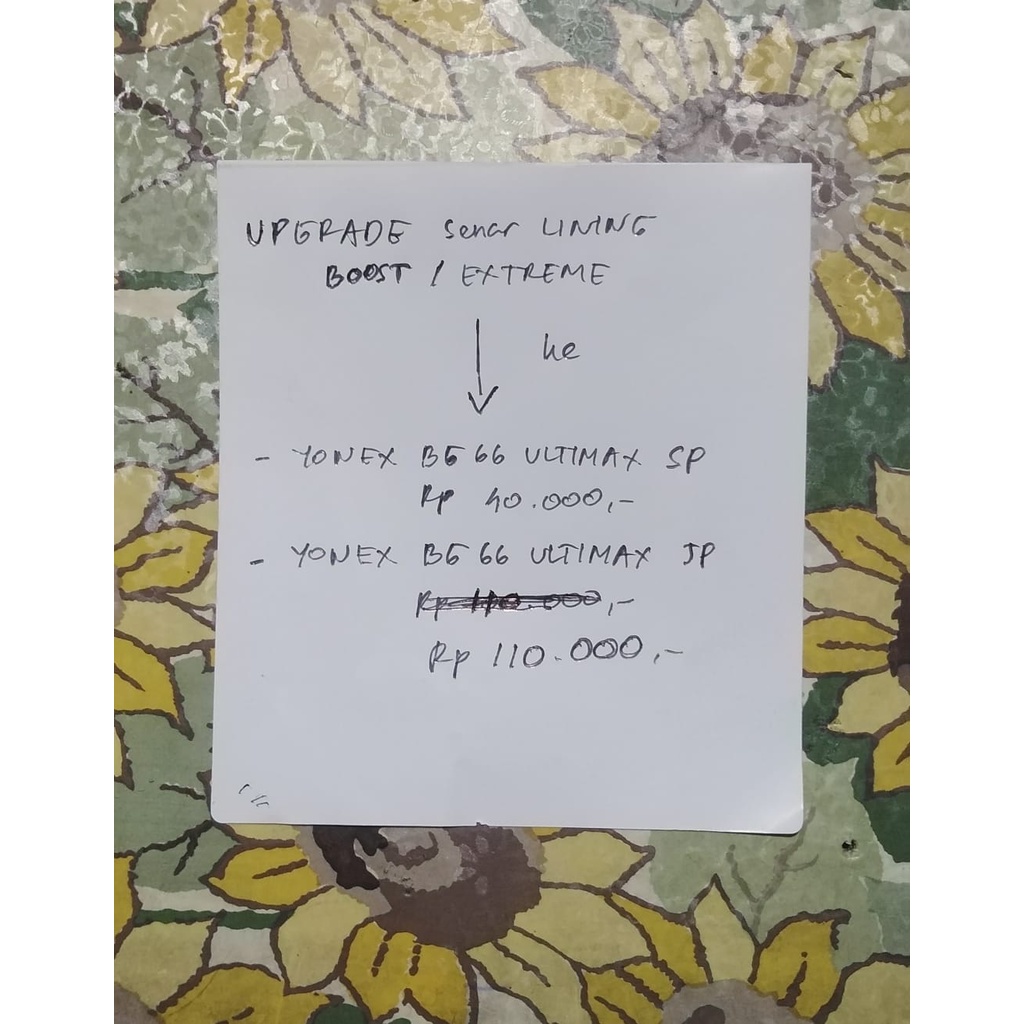 UPGRADE senar LINING
BOOST / EXTREME
ke
- YONEX BG 66 ULTIMAX SP
Rp 40.000,-
- YONEX BG 66 ULTIMAX JP
Rp 110.000,-
Rp 110.000,-